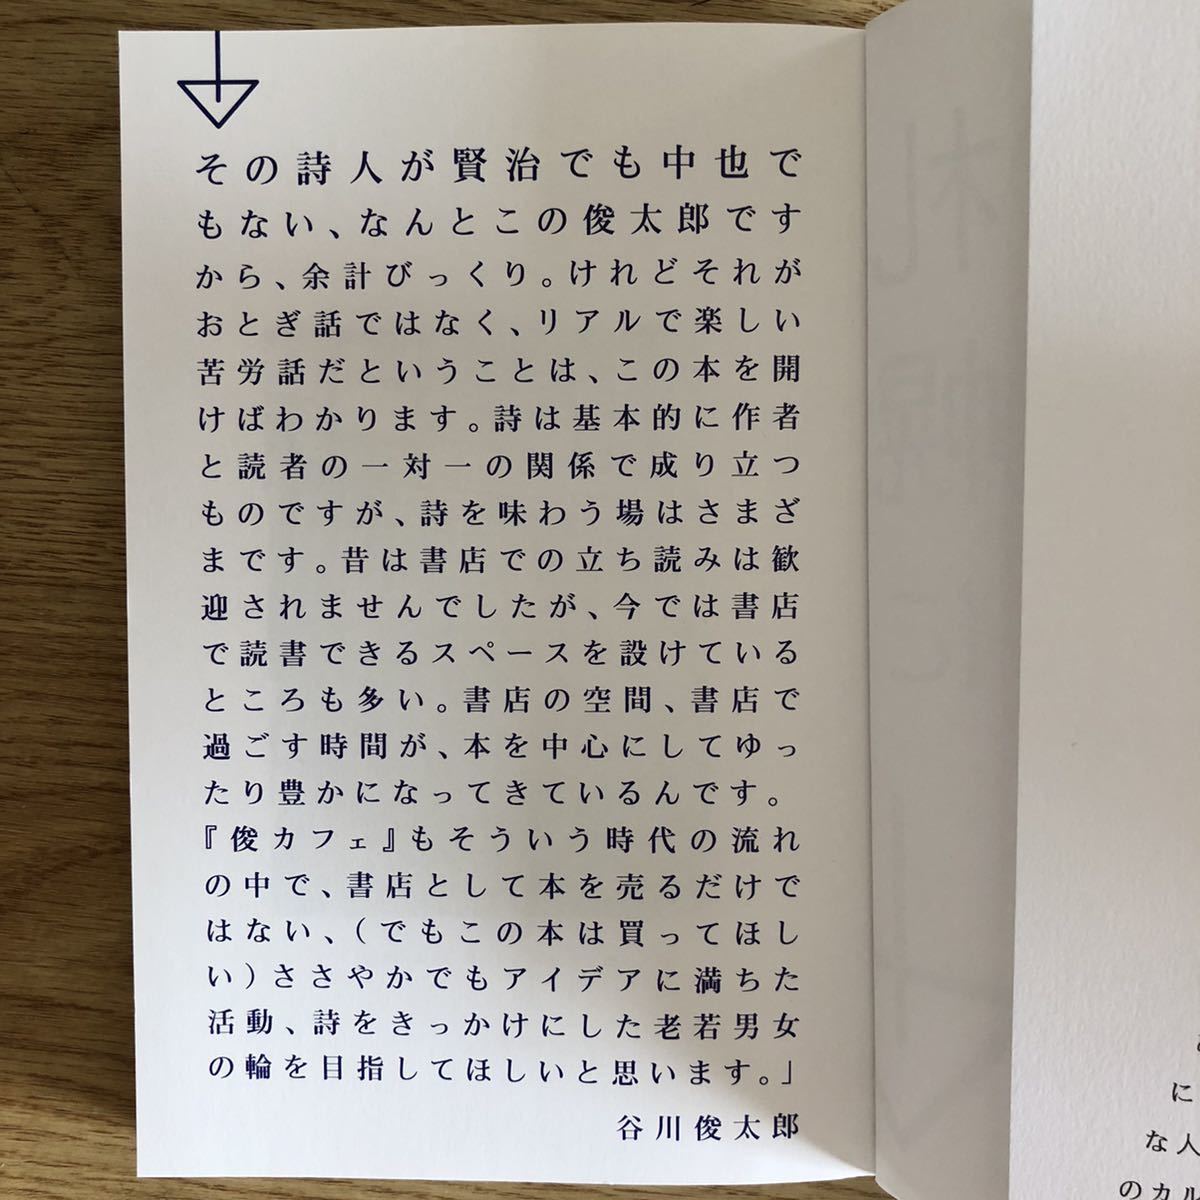 その詩人が賢治でも中也で
もない、なんとこの俊太郎です
から、余計びっくり。けれどそれが
おとぎ話ではなく、リアルで楽しい
苦労話だということは、この本を開
けばわかります。詩は基本的に作者
と読者の一対一の関係で成り立つ
ものですが、詩を味わう場はさまざ
まです。昔は書店での立ち読みは歓
迎されませんでしたが、今では書店
で読書できるスペースを設けている
ところも多い。書店の空間、書店で
過ごす時間が、本を中心にしてゆっ
たり豊かになってきているんです。
『俊カフェ』もそういう時代の流れ
の中で、書店として本を売るだけで
はない、(でもこの本は買ってほし
い)ささやかでもアイデアに満ちた
活動、詩をきっかけにした老若男女
の輪を目指してほしいと思います。」
谷川俊太郎
に
な人
のカル